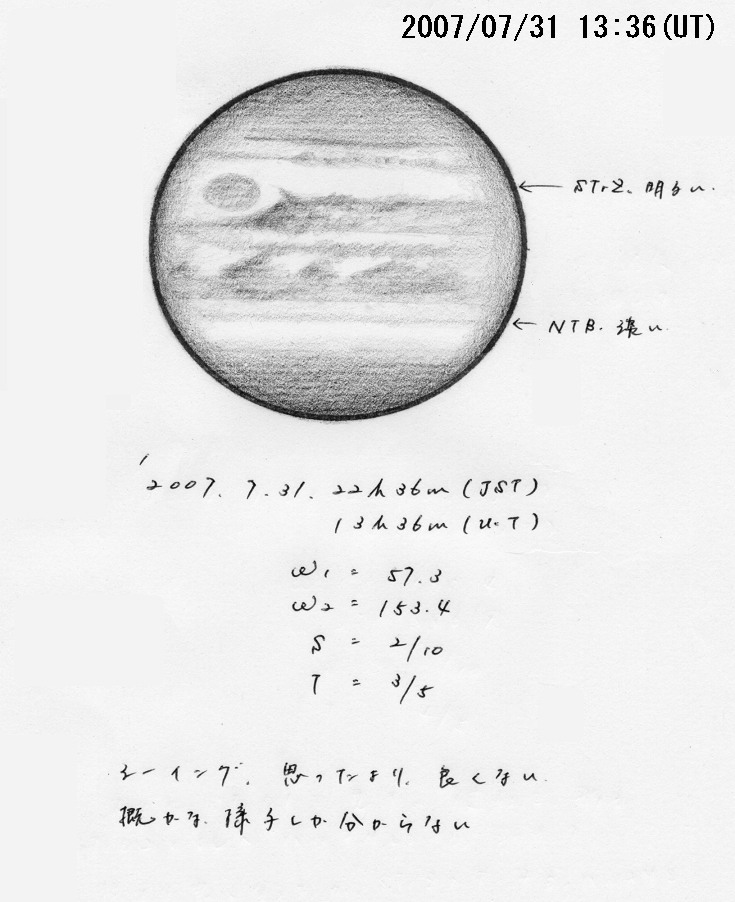 2007/07/31 13:36(UT)
← STrZ. 明るい.
← NTB. 濃い.
'2007. 7. 31. 22h 36m (JST)
13h 36m (U.T)
ω1 = 57.3
ω2 = 153.4
S = 2/10
T = 3/5
シーイング、思ったより、良くない.
概かな様子しか分からない